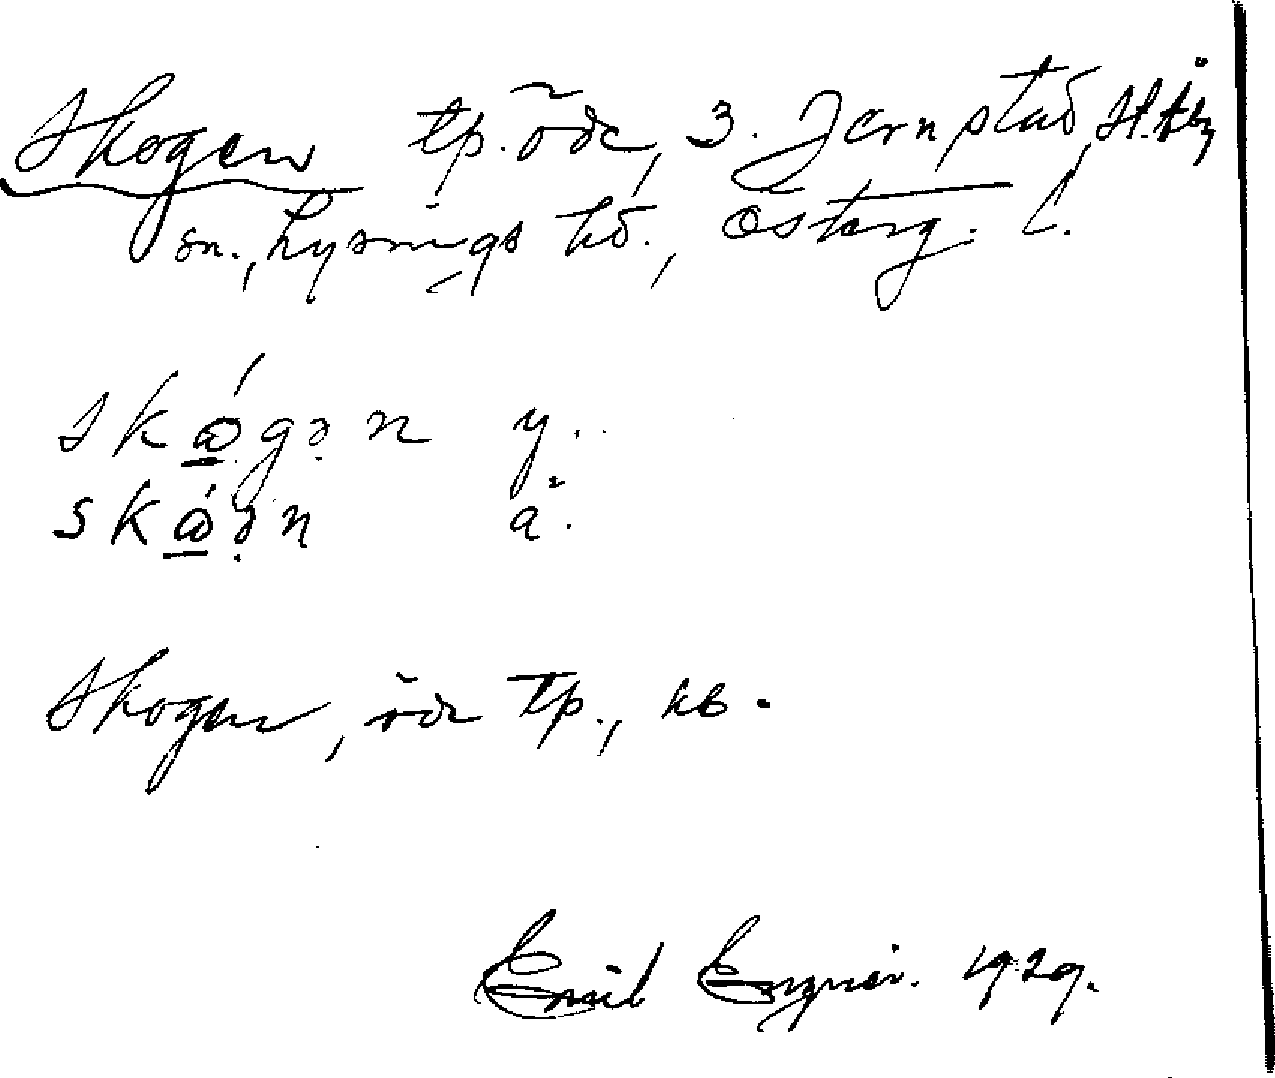 Skogen tp. öde, 3. Jernstad, St. Åby
sn., Lysings hd., Österg. l.
skɷ́gə̣n y.
skɷ́ə̣n ä.
Skogen, öde tp., kb.
Emil 1929.